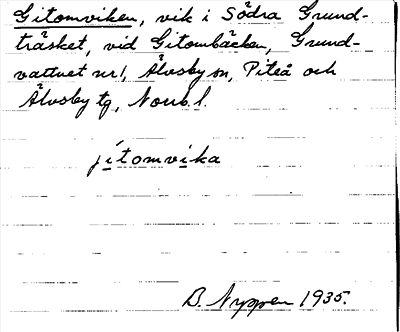 Gitomviken, vik i Södra Grund-
träsket, vid Gitombäcken, Grund-
vattnet nr 1, Älvsby sn, Piteå och
Älvsby tg, Norrb. l.
jitomvika
B. Nyppen 1935.